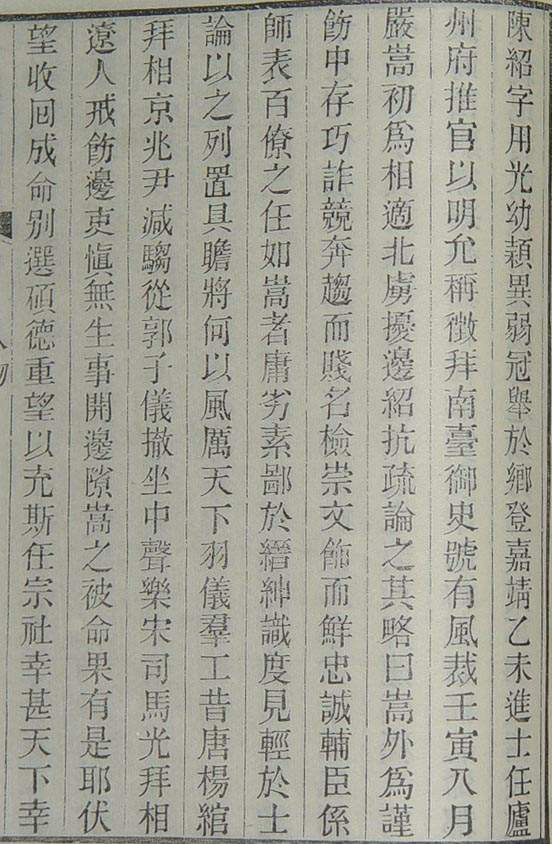 陳紹字用光幼穎異弱冠舉於鄉登嘉靖乙未進士任廬
州府推官以明允稱徵拜南臺御史號有風裁壬寅八月
嚴嵩初爲相適北虜擾邊紹抗疏論之其略曰嵩外爲謹
飭中存巧詐競奔趨而賤名檢崇文飾而鮮忠誠輔臣係
師表百僚之任如嵩者庸劣素鄙於縉紳識度見輕於士
論以之列置具瞻將何以風厲天下羽儀羣工昔唐楊綰
拜相京兆尹減騶從郭子儀撤坐中聲樂宋司馬光拜相
遼人戒飭邊吏愼無生事開邊隙嵩之被命果有是耶伏
望收回成命別選碩德重望以充斯任宗社幸甚天下幸